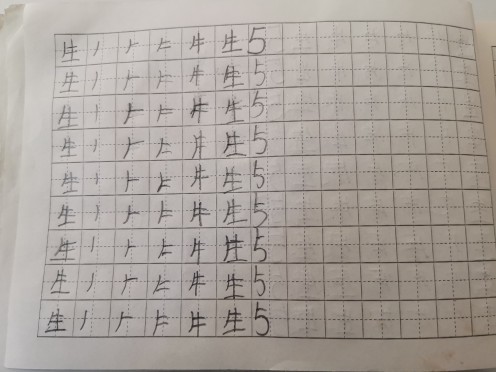 生 丿 𠂉 𠂒 牛 生 5
生 丿 𠂉 𠂒 牛 生 5
生 丿 𠂉 𠂒 牛 生 5
生 丿 𠂉 𠂒 牛 生 5
生 丿 𠂉 𠂒 牛 生 5
生 丿 𠂉 𠂒 牛 生 5
生 丿 𠂉 𠂒 牛 生 5
生 丿 𠂉 𠂒 牛 生 5
生 丿 𠂉 𠂒 牛 生 5